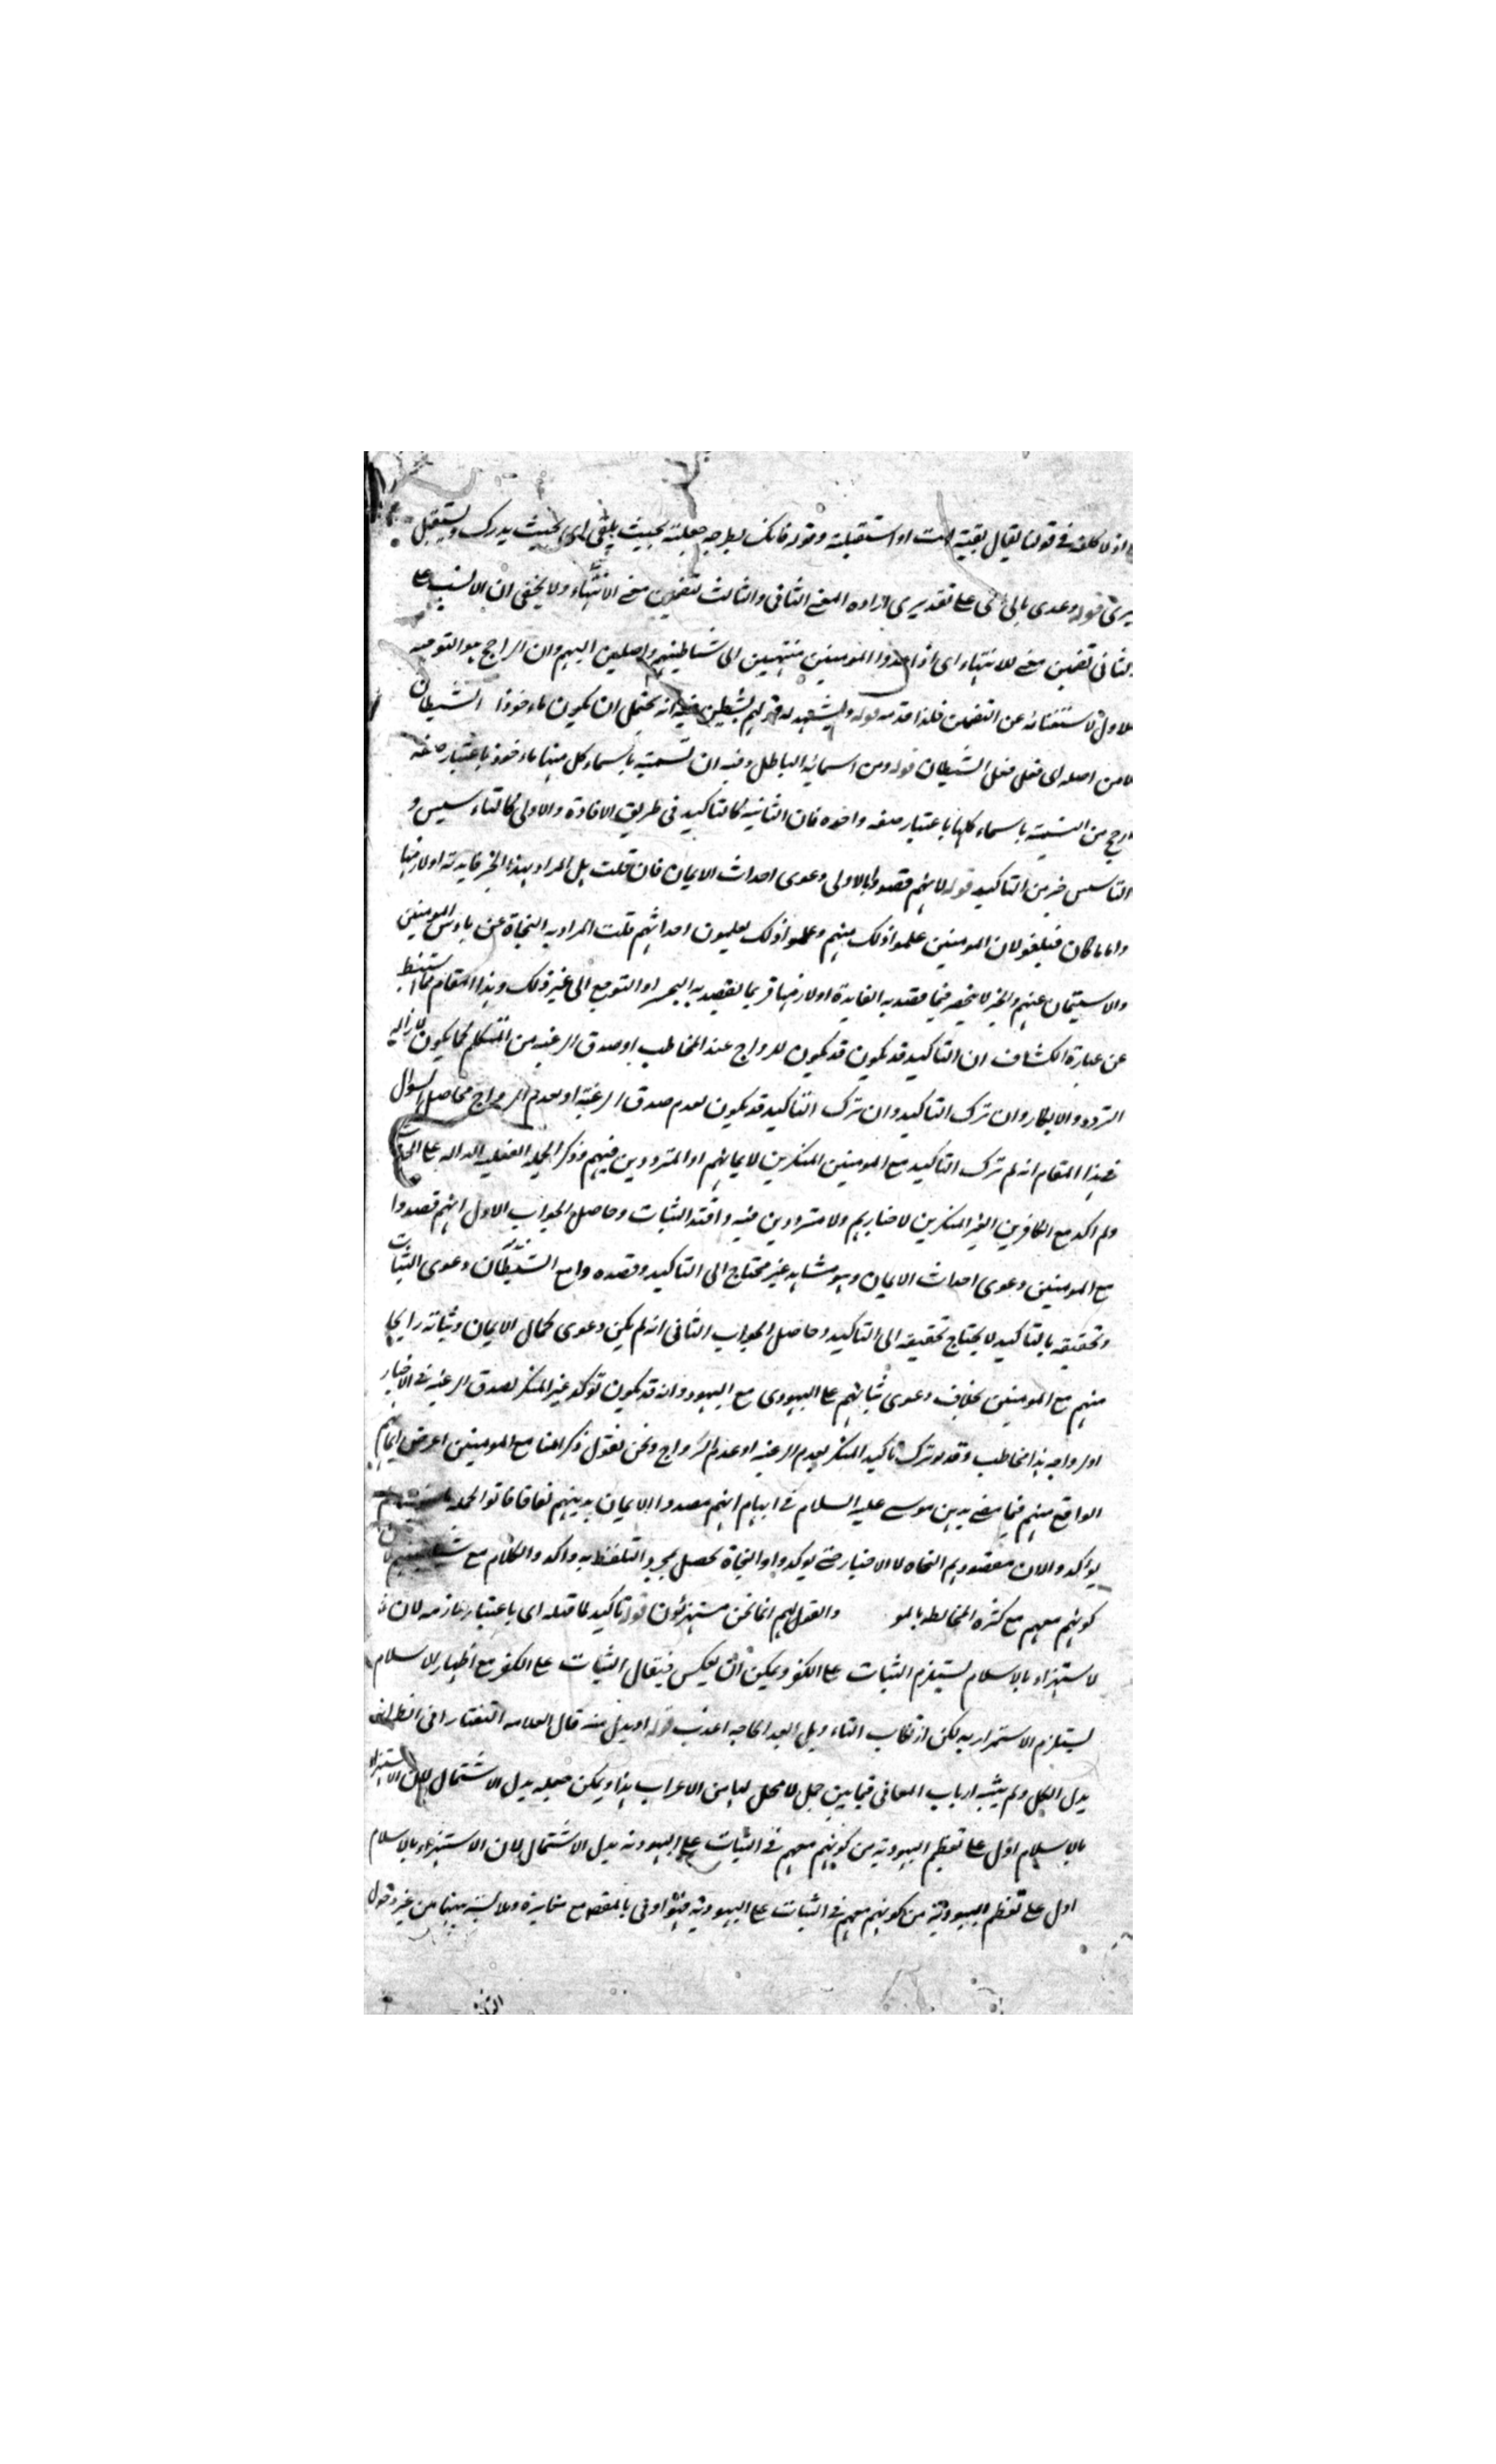 اذ لا كلفة في قولنا يقال لقيته اذا استقبلته وقوله فانك بطرحه جعلته بحيث يلقى اى بحيث يدرك ويستقبل
قوله وعدى بالى اى على تقديرى ارادة المعنى الثانى والثالث لتضمين معنى الانتهاء ولا يخفى ان الانسب على
الثانى تضمين معنى الانتهاء اى اذا المومنين منتهين الى شياطينهم واصلين اليهم وان الراجح هو التوجيه
الاول لاستغنائه عن التضمين فلذا قدمه قوله ويشهد له قولهم تشيطن فيه انه يحتمل ان يكون ماءخوذا الشيطان
لا من اصله اى فعل فعل الشيطان قوله ومن اسمائه الباطل وفيه ان تسميته باسماء كل منها ماءخوذ باعتبار صفة
ارجح من التسمية باسماء كلها باعتبار صفة واحدة فان الثانية كالتاكيد فى طريق الافادة والاولى كالتاءسيس و
التاسيس خير من التاكيد قوله لانهم قصدوا بالاولى دعوى احداث الايمان فان قلت هل المراد بهذا الخبر فايدته او لازمها
واياما كان فيلغو لان المومنين علموا ذلك منهم وعلموا ذلك يعلمون احداثهم قلت المراد به النجاة عن باءس المومنين
والاستيمان عنهم والخبر لا ينحصر فيما قصد به الفايدة او لازمها فربما يقصد به التحسر او التوجع الى غير ذلك وهذا المقام مما استنبط
عن عبارة الكشاف ان التاكيد قد يكون قد يكون للرواج عند المخاطب او صدق الرغبة من المتكلم كما يكون لازالة
التردد والانكار وان ترك التاكيد وان ترك التاكيد قد يكون لعدم صدق الرغبة او لعدم الرواج محاصل السؤال
فى هذا المقام انه لم ترك التاكيد مع المومنين المنكرين لايمانهم او المترددين فيهم وذكر الجملة الفعلية الدالة على
ولم اكد مع الكافرين الغير المنكرين لاخبارهم ولا مترددين فيه وافتد الثبات وحاصل الجواب الاول انهم قصدوا
مع المومنين دعوى احداث الايمان وهو مشابه غير محتاج الى التاكيد وقصدوا مع الشيطان دعوى الثبات
وتحقيقه بالتاكيد لا يحتاج تحقيقه الى التاكيد وحاصل الجواب الثانى انه لم يكن دعوى كمال الايمان وثباته رايجا
منهم مع المومنين بخلاف دعوى ثباتهم على اليهودى مع اليهود وانه قد يكون توكد غير المنكر لصدق الرغبة فى الاخبار
او لرواجه هذا مخاطب وقد ترك تاكيد المنكر لعدم الرغبة او عدم الرواج ونحن نقول ذكر امنا مع المومنين اعرض ايمانهم
الواقع منهم فيما مضى بدين موسى عليه السلام فى ايهام انهم قصدوا الايمان بدينهم نفاقا فاتوا الجملة
يواكد والان مقصودهم النجاه لا الاخبار حتى يوكدوا والنجاة تحصل بمجرد التلفظ به واكدوا الكلام مع شياطينهم لان
كونهم معهم مع كثرة المخالطة بالمو والقول لهم انما نحن مستهزئون قوله تاكيد لما قبله اى باعتبار لازمه لان
لاستهزاء بالاسلام يستلزم الثبات على الكفر ويمكن ان يعكس فيقال الثبات على الكفر مع اظهار الاسلام
يستلزم الاستمرار به لكن ارتكاب التاءويل بعد الحاجة اعذب قوله او بدل منه قال العلامة التفتازانى الظاهر انه
بدل الكل ولم يثبته ارباب المعانى فيما بين جمل لا محل لها من الاعراب هذا ويمكن جعله بدل الاشتمال لان الاستهزاء
بالاسلام ادل على تعظيم اليهودية من كونهم معهم فى الثبات على اليهودية بدل الاشتمال لان الاستهزاء بالاسلام
ادل على تعظم اليهودية من كونهم معهم فى الثبات على اليهودية فهو اوفى بالمقصد مع مغايرة وملابسة بينهما من غير دخول